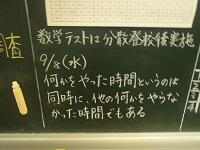 数学テストは分散登校後実施
9/8(水)
何かをやった時間というのは
同時に、他の何かをやらな
かった時間でもある
査